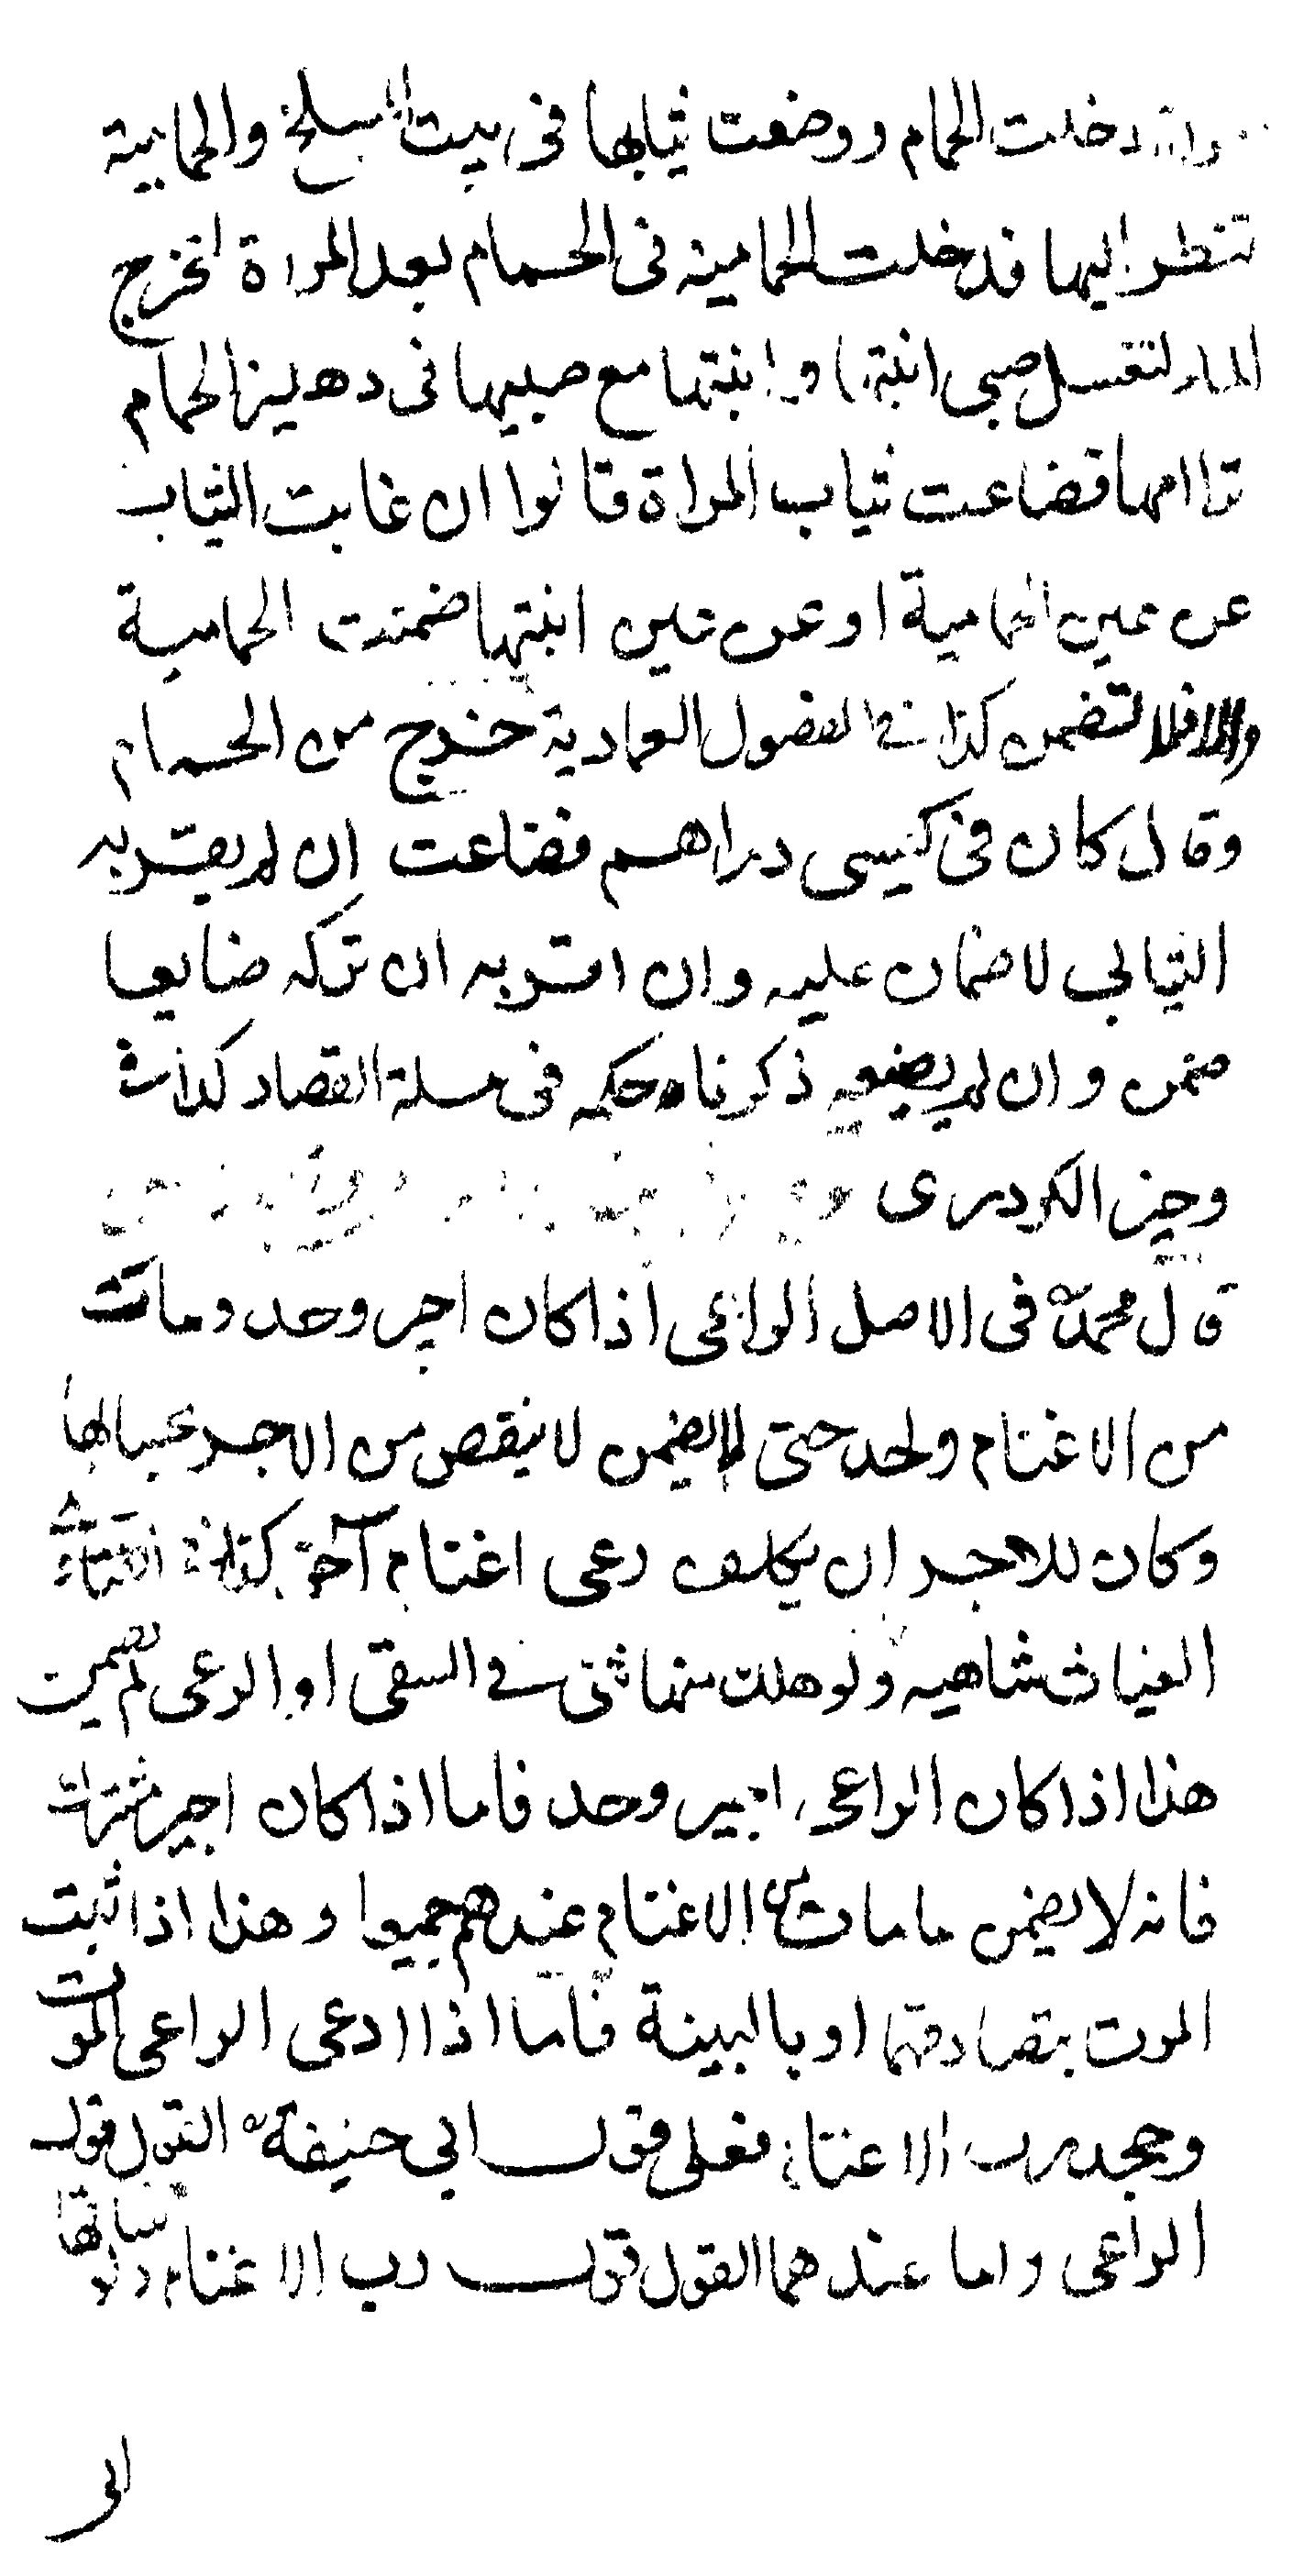 دخلت الحمام ووضعت ثيابها فى بيت المسلخ والحمامية
تنظر اليها فدخلت الحمامية فى الحمام بعد المراة لتخرج
الماء لتغسل صبى ابنتها وابنتها مع صبيها فى دهليز الحمام
ترا امها فضاعت ثياب المراة قالوا ان غابت الثياب
عن عين الحمامية او عن عين ابنتها ضمنت الحمامية
والا فلا تضمن كذا فى الفصول العمادية خرج من الحمام
وقال كان فى كيسى دراهم فضاعت ان لم يقر به
الثيابى لا ضمان عليه وان اقر به ان تركه ضايعا
ضمن وان لم يضيعه ذكرنا حكمه فى مسلة القصار كذا فى
وجيز الكردرى
قال محمد فى الاصل الراعى اذا كان اجير وحد ومات
من الاغنام واحد حتى لا يضمن لا ينقص من الاجر بحسابها
وكان للاجر ان يكلف رعى اغنام آخر كذا فى
الغياث شاهيه ولو هلك منها شئ فى السقى او الرعى لم يضمن
هذا اذا كان الراعى اجير وحد فاما اذا كان اجير مشترك
فانه لا يضمن ما مات من الاغنام عندهم جميعا وهذا اذا ثبت
الموت بتصادقهما او بالبينة فاما اذا ادعى الراعى الموت
وجحد رب الاغنام فعلى قول ابى حنيفة القول قول
الراعى واما عندهما القول قول رب الاغنام ولو ساقها
الى